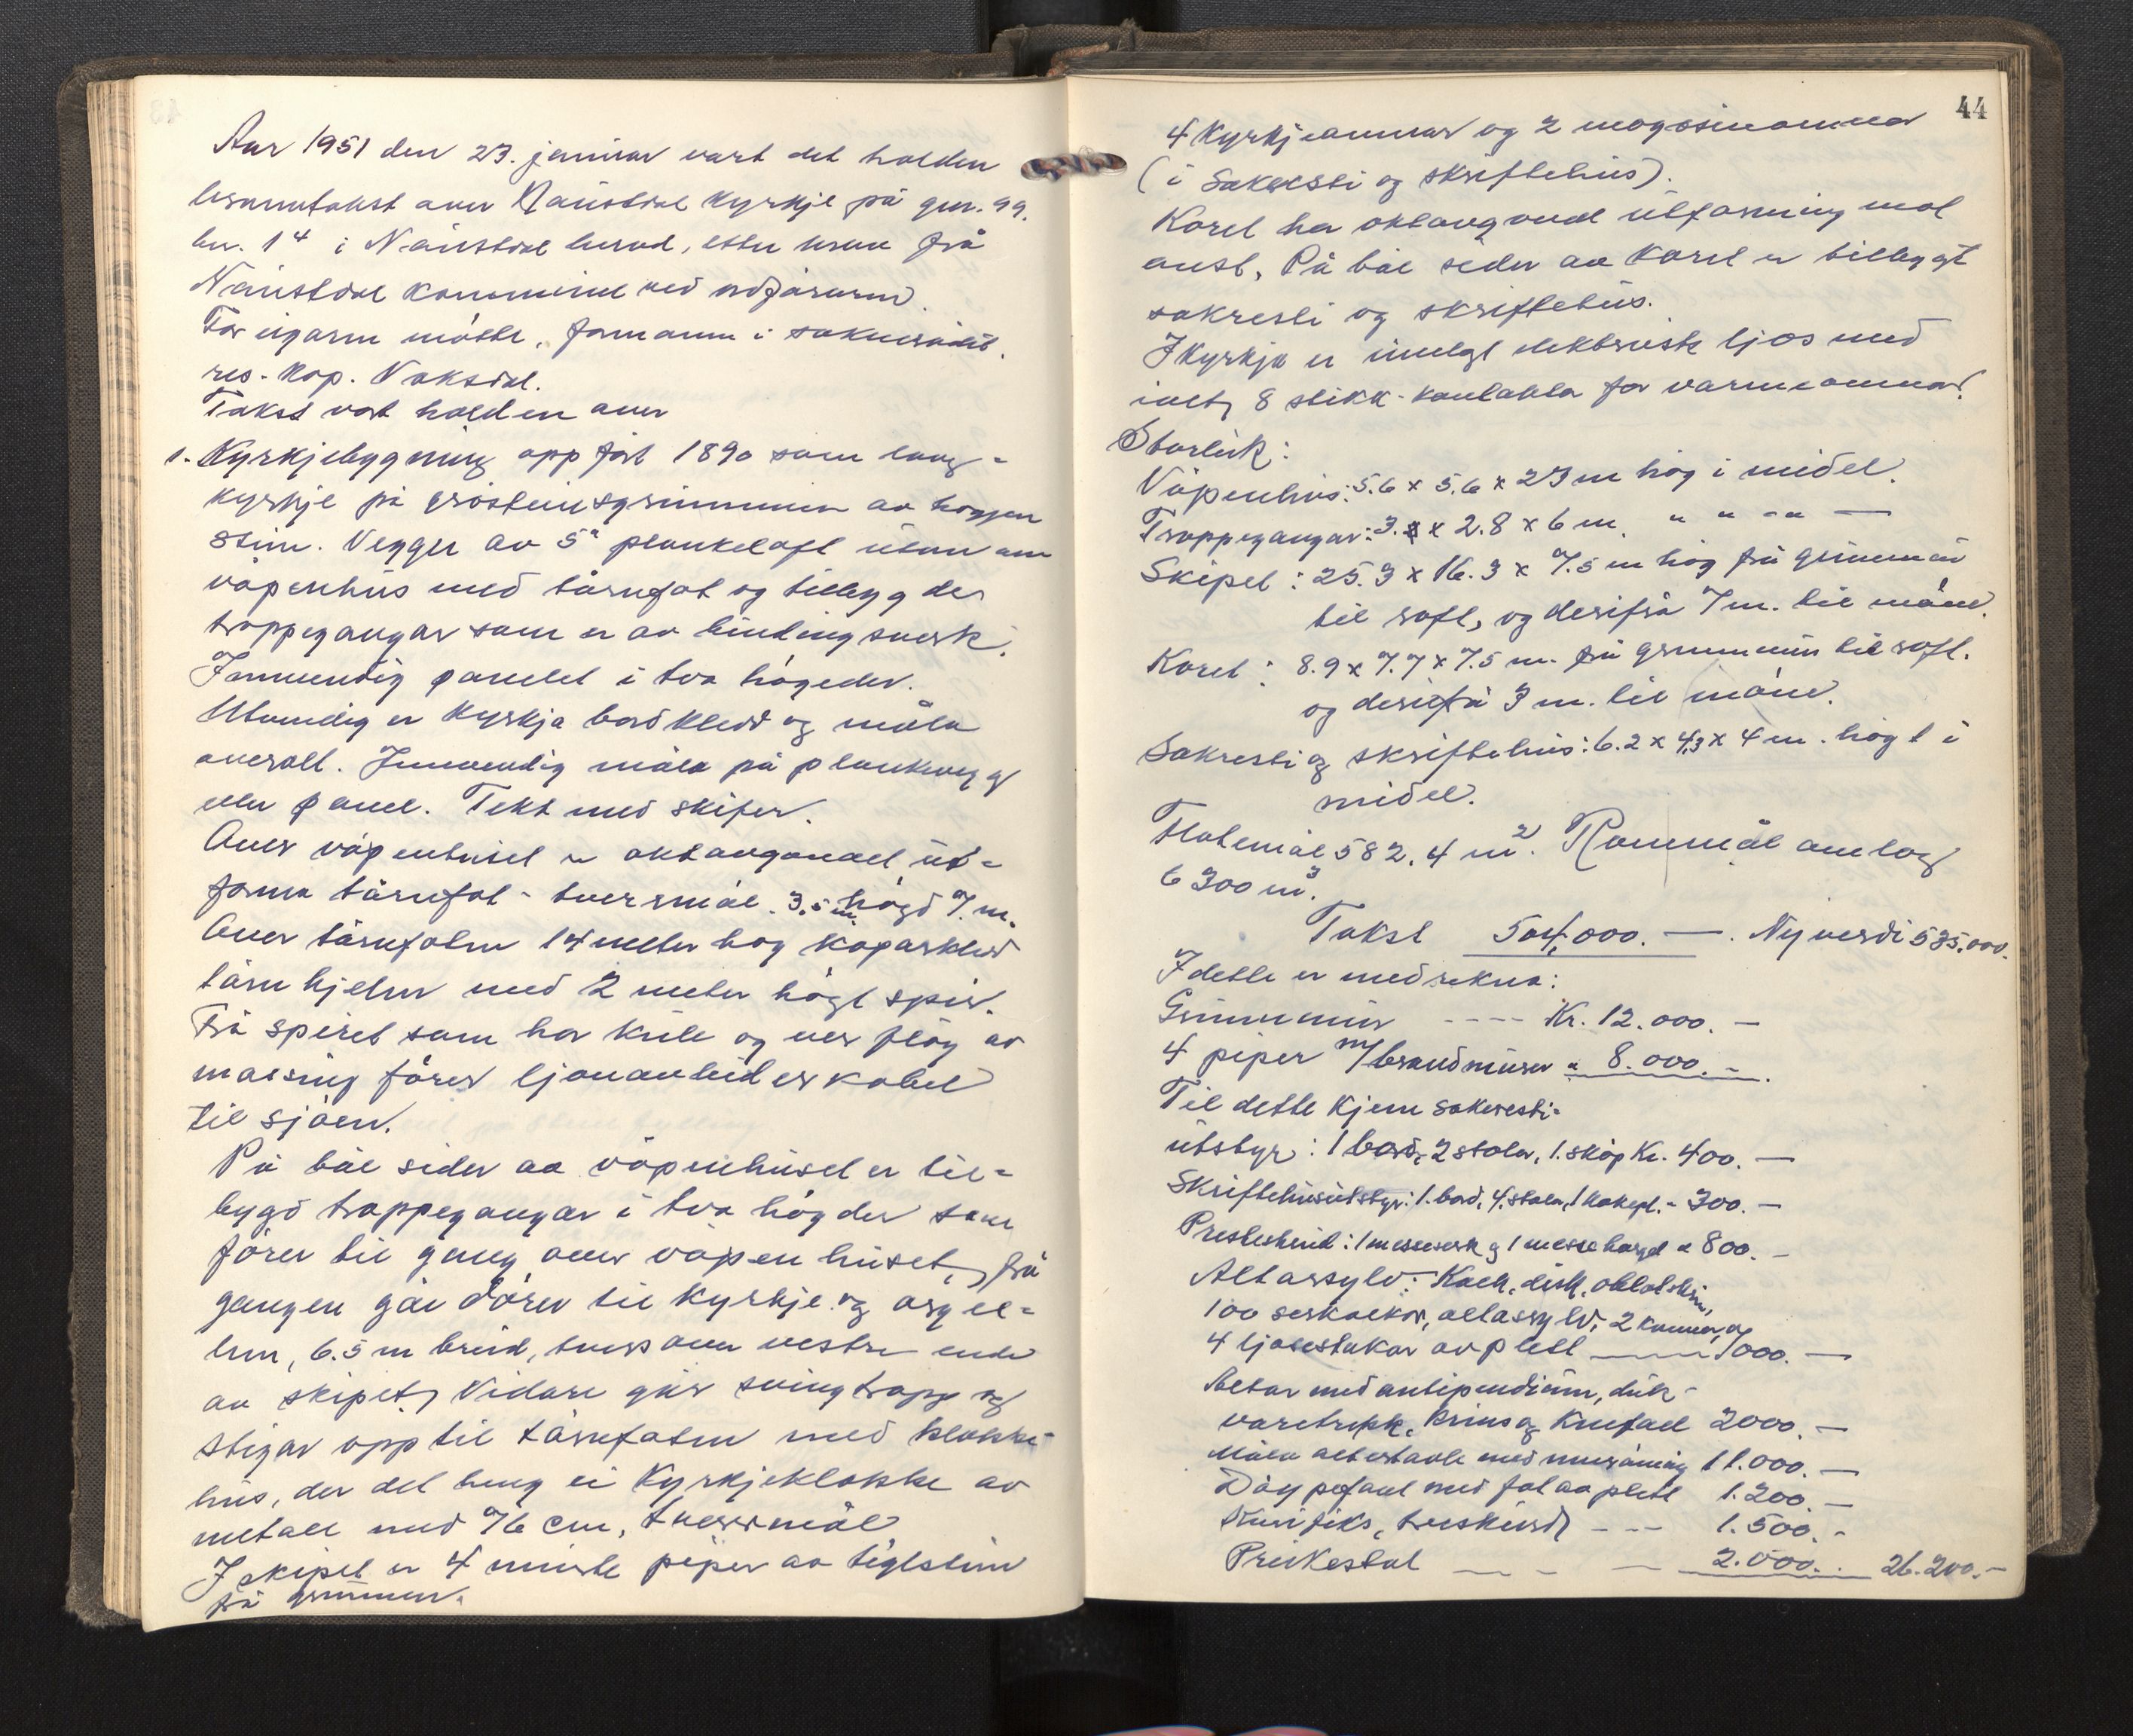 Aar 1951 den 23. januar vart det halden
branntakst over Naustdal Kyrkje på gnr. 99.
bnr. 14 i Naustdal herad, etter krav frå
Naustdal kommune ved ordføraren.
For eigaren møtte, formann i soknerådet.
res. kap. Vaksdal.
Takst vart halden over
1. Kyrkjebygning oppført 1890 som lang-
kyrkje på gråsteinsgrunnmur av hoggen
stein. Vegger av 5" plankelaft utan om
våpenhus med tårnfot og tilbygde
trappegangar som er av bindingsverk.
Innvendig panelet i two høgder.
Utvendig er Kyrkja bordkledd og måla
overalt. Innvendig måla på plankevegg
eller panel. Tekt med skifer.
Over våpenhuset er oktavgonael ut-
forma tårnfot - tversmål. 3.5 m høgd 7. m.
Over tårnfoten 14 meter høg koparkledd
tårnhjelm med 2 meter høgt spir.
Frå spiret som har kule og verfløy av
messing fører ljonavleidar kabel
til sjøen.
På båe sider av våpenhuset er til-
bygd trappegangar i tva høgder som
fører til gang over våpenhuset, frå
gangen går dører til Kyrkje og orgel-
lem, 6.5 m breid, tvers over vestre ende
av skipet, Vidare går svingtrapp og
stigar opp til tårnfoten med klokke-
hus, der det heng ei Kyrkjeklokke av
metall med 76 cm, tverrmål
I skipet er 4 murte piper av teglstein
frå grunnen.
44
4 Kyrkjeomnar og 2 magasinomnar
(i Sakresti og skriftehus).
Koret har oktavgonael utforming mot
aust. På båe sider av Koret er tilbygt
sakresti og skriftehus.
I Kyrkja er innlagt elektrisk ljos med
8 stikk-kontakta for varmeomnar.
Storleik:
Våpenhus: 5.6 x 5.6 x 23 m høg i midel.
Trappegangar: 3. x 2.8 x 6 m. " " - " —
Skipet: 25.3 x 16.3 x 7.5 m høg frå grunnmur
til raft, og derifrå 7 m. til møne.
Koret: 8.9 x 7.7 x 7.5 m. frå grunnmur til raft.
og derifrå 3 m. til møne.
Sakresti og skriftehus: 6.2 x 4,3 x 4 m. høgt i
midel.
Flatemål 582.4 m². Rommål omlag
6300 m³.
Takst 504,000. — . Nyverdi 535.000.
I dette er medrekna:
Grunnmur ---- Kr. 12.000. —
4 piper m/brandmurar " 8.000. —
Til dette kjem sakresti-
utstyr: 1 bord, 2 stolar, 1. skåp Kr. 400. —
Skriftehusutstyr: 1. bord, 4. stolar, 1 kakepl. - 300. —
Presteskrud: 1 messeserk og 1 messehagel " 800. —
Altarsylv: Kalk, disk, oblatskrin,
100 serkalkar, altarsylv, 2 kanner, og
4 ljosestakar av plett —— 7000. —
Altar med antipendium, duk-
varetrekk, krins og knefall 2000. —
Måla altertavle med innraming 11.000. —
Døypefont med fat av plett 1.200. —
Krusifiks, treskurd --- 1.500. -
Preikestol — - — 2.000. . 26.200. —